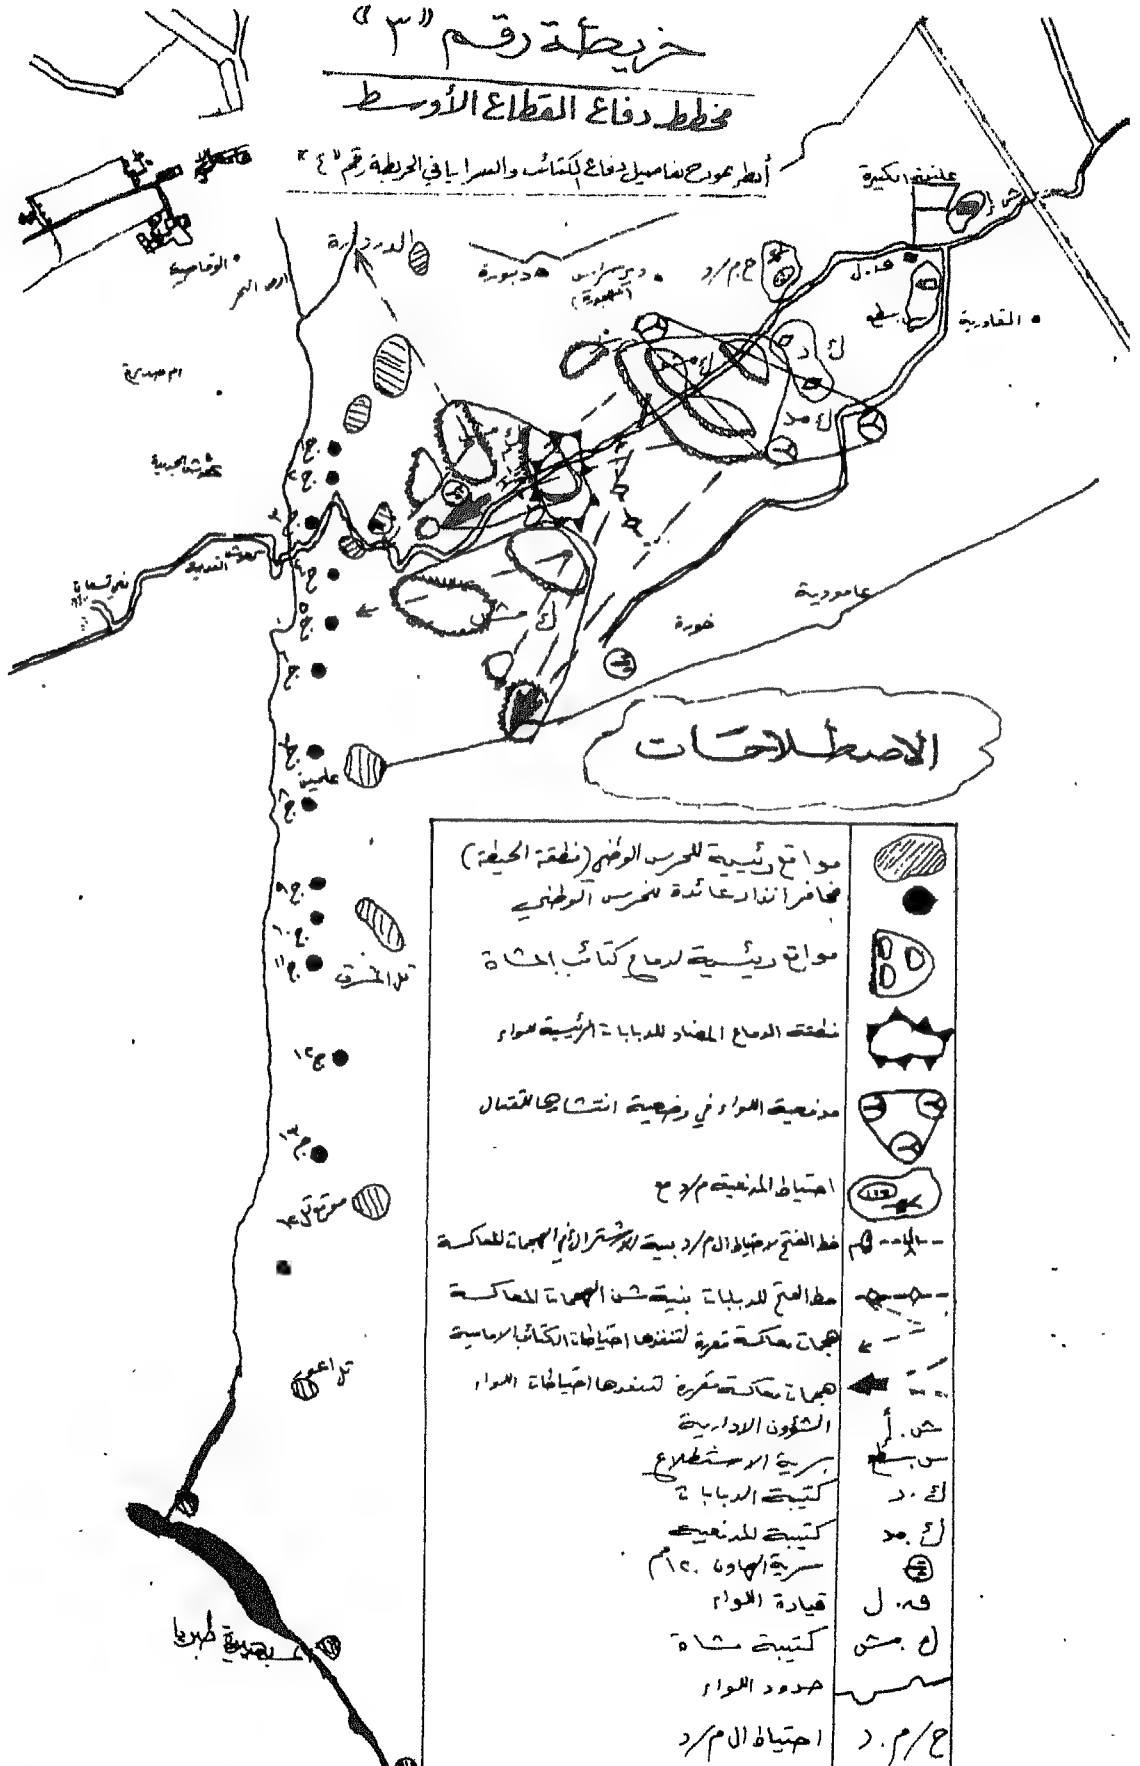 خريطة رقم "٣"
مخطط دفاع القطاع الأوسط
أنظر نموذج تفاصيل دفاع الكتائب والسرايا في الخريطة رقم "٤"
عليقة الكبيرة
ش.أ
الدردارة
دبورة
دير سراس
ح/م/د
ق.ل
س.سطع
القادرية
ك.د
ك.مد
ك مش
عامودية
خورة
علمين
تل المشرق
تل اعور
بحيرة طبريا
ج١
ج٢
ج٣
ج٤
ج٥
ج٦
ج٧
ج٨
ج٩
ج١٠
ج١١
ج١٢
ج١٣
الاصطلاحات
مواقع رئيسية للحرس الوطني (منطقة الحيطة)
مخافر انذار عائدة للحرس الوطني
مواقع رئيسية لدفاع كتائب المشاة
منطقة الدفاع المضاد للدبابات الرئيسية للواء
مدفعية اللواء في وضعية انتشارها للقتال
احتياط المدفعية م/د مع
خط الفتح لاحتياط ال م/د بنية الاشتراك في الهجمات المعاكسة
خط الفتح للدبابات بنية شن الهجمات المعاكسة
هجمات معاكسة مقررة لتنفذها احتياطات الكتائب الامامية
هجمات معاكسة مقررة لتنفذها احتياطات اللواء
ش.أ الشؤون الادارية
س.سطع سرية الاستطلاع
ك.د كتيبة الدبابات
ك.مد كتيبة المدفعية
سرية الهاون ١٢٠مم
ق.ل قيادة اللواء
ك.مش كتيبة مشاة
حدود اللواء
ح/م.د احتياط ال م/د